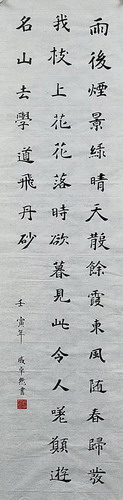 雨後煙景綠晴天散餘霞東風隨春歸發
我枝上花花落時欲暮見此令人嗟願遊
名山去學道飛丹砂
壬寅年 卓然書